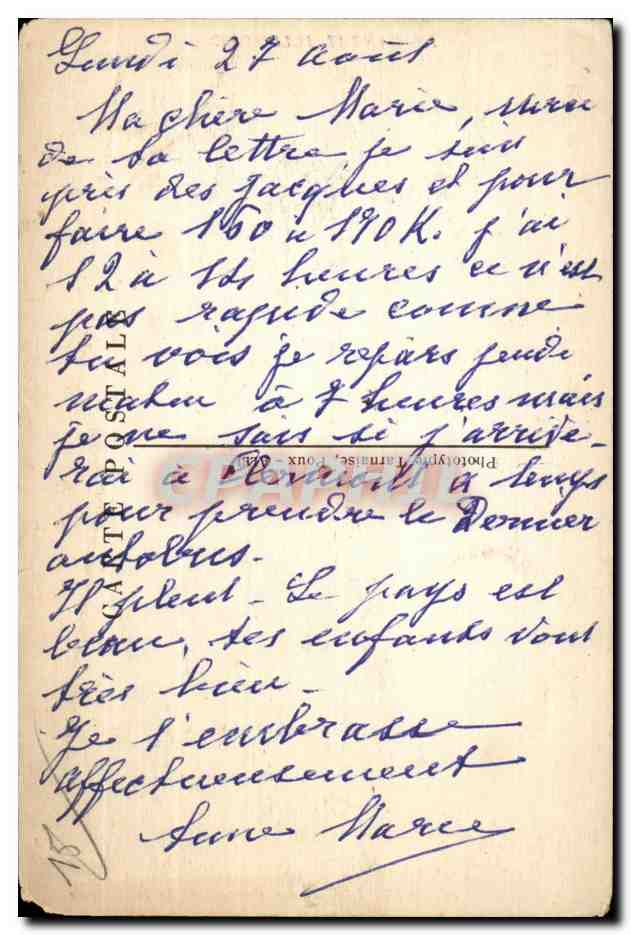 Lundi 27 Août
Ma chère Marie,
de ta lettre je suis
près des Jacques et pour
faire 160 à 170 K. j'ai
12 à 14 heures ce n'est
pas rapide comme
tu vois je repars jeudi
matin à 7 heures mais
je ne sais si j'arrive-
rai à à temps
pour prendre le Dernier
autobus.
Il pleut - Le pays est
beau, tes enfants vont
très bien -
Je t'embrasse
affectueusement
Anne Marie
15
CARTE POSTALE
Phototypie Tarnaise, Poux - Albi
CPARAMA